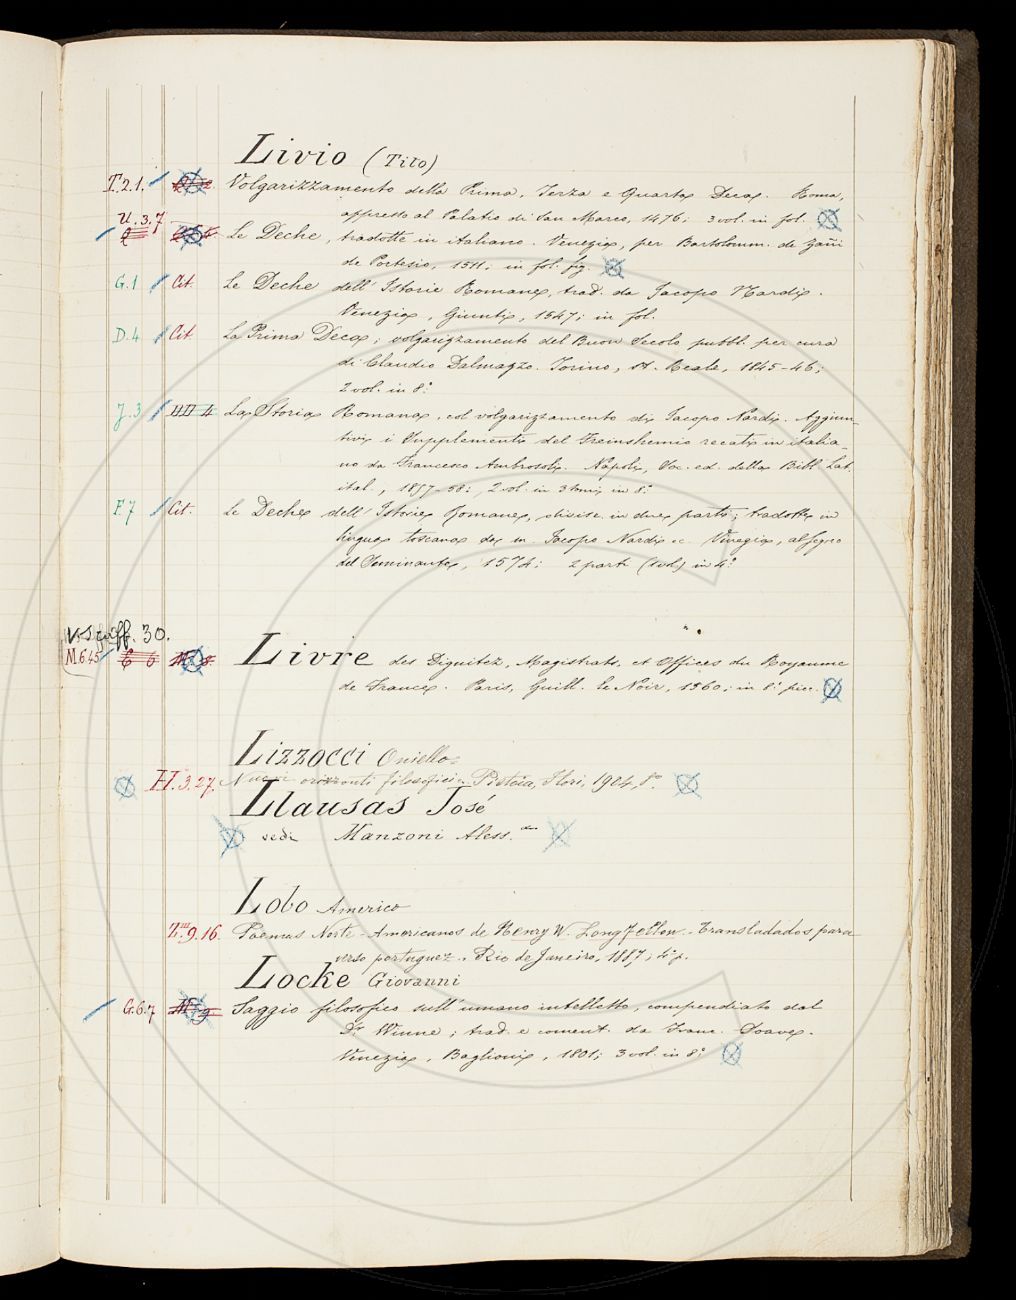 Livio (Tito)
T.2.1. Volgarizzamento della Prima, Terza e Quarta Deca. Roma,
appresso al Palatio di San Marco, 1476; 3 vol. in fol.
U.3.7
Le Deche, tradotte in italiano. Venezia, per Bartolomm. de Zani
de Portesio, 1511; in fol. fig.
G.1 Cit. Le Deche dell' Istorie Romane, trad. da Jacopo Nardi.
Venezia, Giunti, 1547; in fol.
D.4 Cit La Prima Deca, volgarizzamento del Buon Secolo pubbl. per cura
di Claudio Dalmazzo. Torino, st. Reale, 1845-46;
2 vol. in 8.°
J.3 La Storia Romana, col volgarizzamento di Jacopo Nardi. Aggiun-
tivi i Supplementi del Freinshemio recati in italia-
no da Francesco Ambrosoli. Napoli, Soc. ed. della Bibl. Lat.
ital., 1857-58; 2 vol. in 3 tomi in 8.°
F.7 Cit. Le Deche dell' Istorie Romane, divise in due parti; tradotte in
lingua toscana da m. Jacopo Nardi ec. Venezia, al segno
del Seminante, 1574; 2 parti (1 vol.) in 4.°
30.
M.6.45 Livre des Dignitez, Magistrats, et Offices du Royaume
de France. Paris, Guill. le Noir, 1560; in 8.° picc.
Lizzocci Oniello
H.3.27. Nuovi orizzonti filosofici. Pistoia, Flori, 1924, 8°.
Llausas José
vedi Manzoni Aless.dro
Lobo Americo
9.16. Poemas Norte-Americanos de Henry W. Longfellow. Transladados para
verso portuguez. Rio de Janeiro, 1887; 4° p.
Locke Giovanni
G.6.7 Saggio filosofico sull'umano intelletto, compendiato dal
Dr. Winne; trad. e coment. da Franc. Soave.
Venezia, Baglioni, 1801; 3 vol. in 8.°